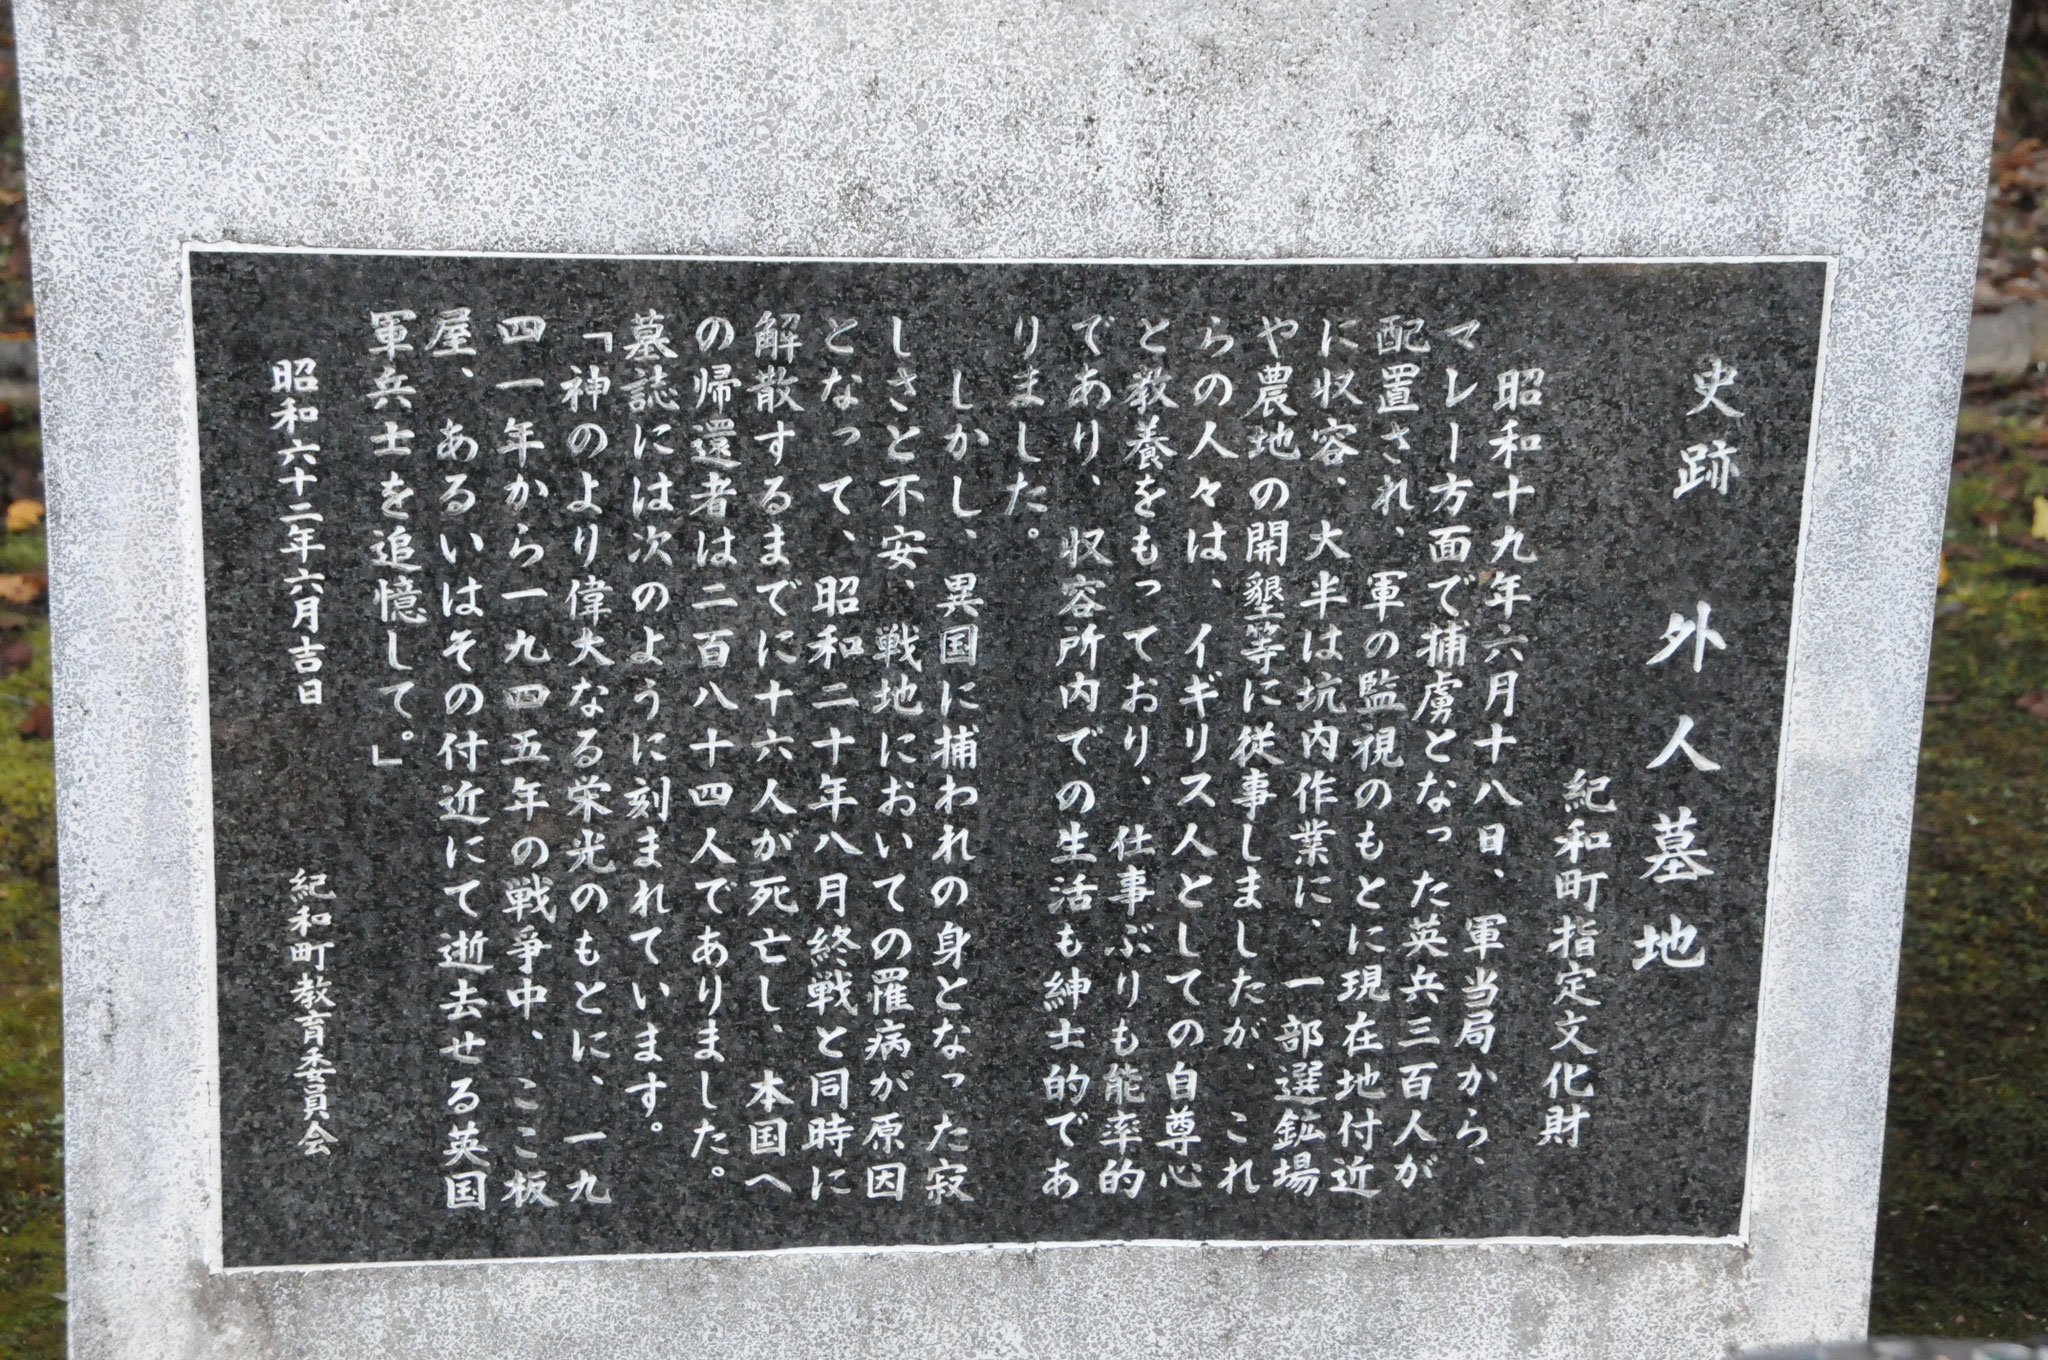 史跡 外人墓地
紀和町指定文化財
昭和十九年六月十八日、軍当局から、
マレー方面で捕虜となった英兵三百人が
配置され、軍の監視のもとに現在地付近
に収容、大半は坑内作業に、一部選鉱場
や農地の開墾等に従事しましたが、これ
らの人々は、イギリス人としての自尊心
と教養をもっており、仕事ぶりも能率的
であり、収容所内での生活も紳士的であ
りました。
しかし、異国に捕われの身となった寂
しさと不安、戦地においての罹病が原因
となって、昭和二十年八月終戦と同時に
解散するまでに十六人が死亡し、本国へ
の帰還者は二百八十四人でありました。
墓誌には次のように刻まれています。
「神のより偉大なる栄光のもとに、一九
四一年から一九四五年の戦争中、ここ板
屋、あるいはその付近にて逝去せる英国
軍兵士を追憶して。」
昭和六十二年六月吉日 紀和町教育委員会